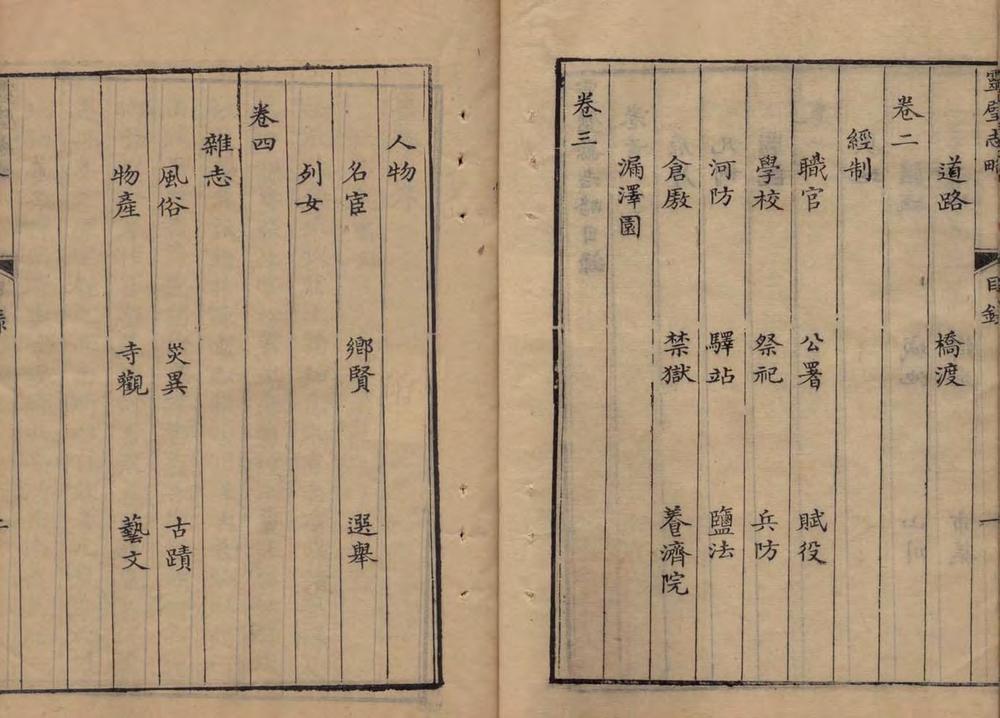 靈璧志略
目錄
一
道路 橋渡
卷二
經制
職官 公署 賦役
學校 祭祀 兵防
河防 驛站 鹽法
倉厫 禁獄 養濟院
漏澤園
卷三
人物
名宦 鄉賢 選舉
列女
卷四
雜志
風俗 災異 古蹟
物產 寺觀 藝文